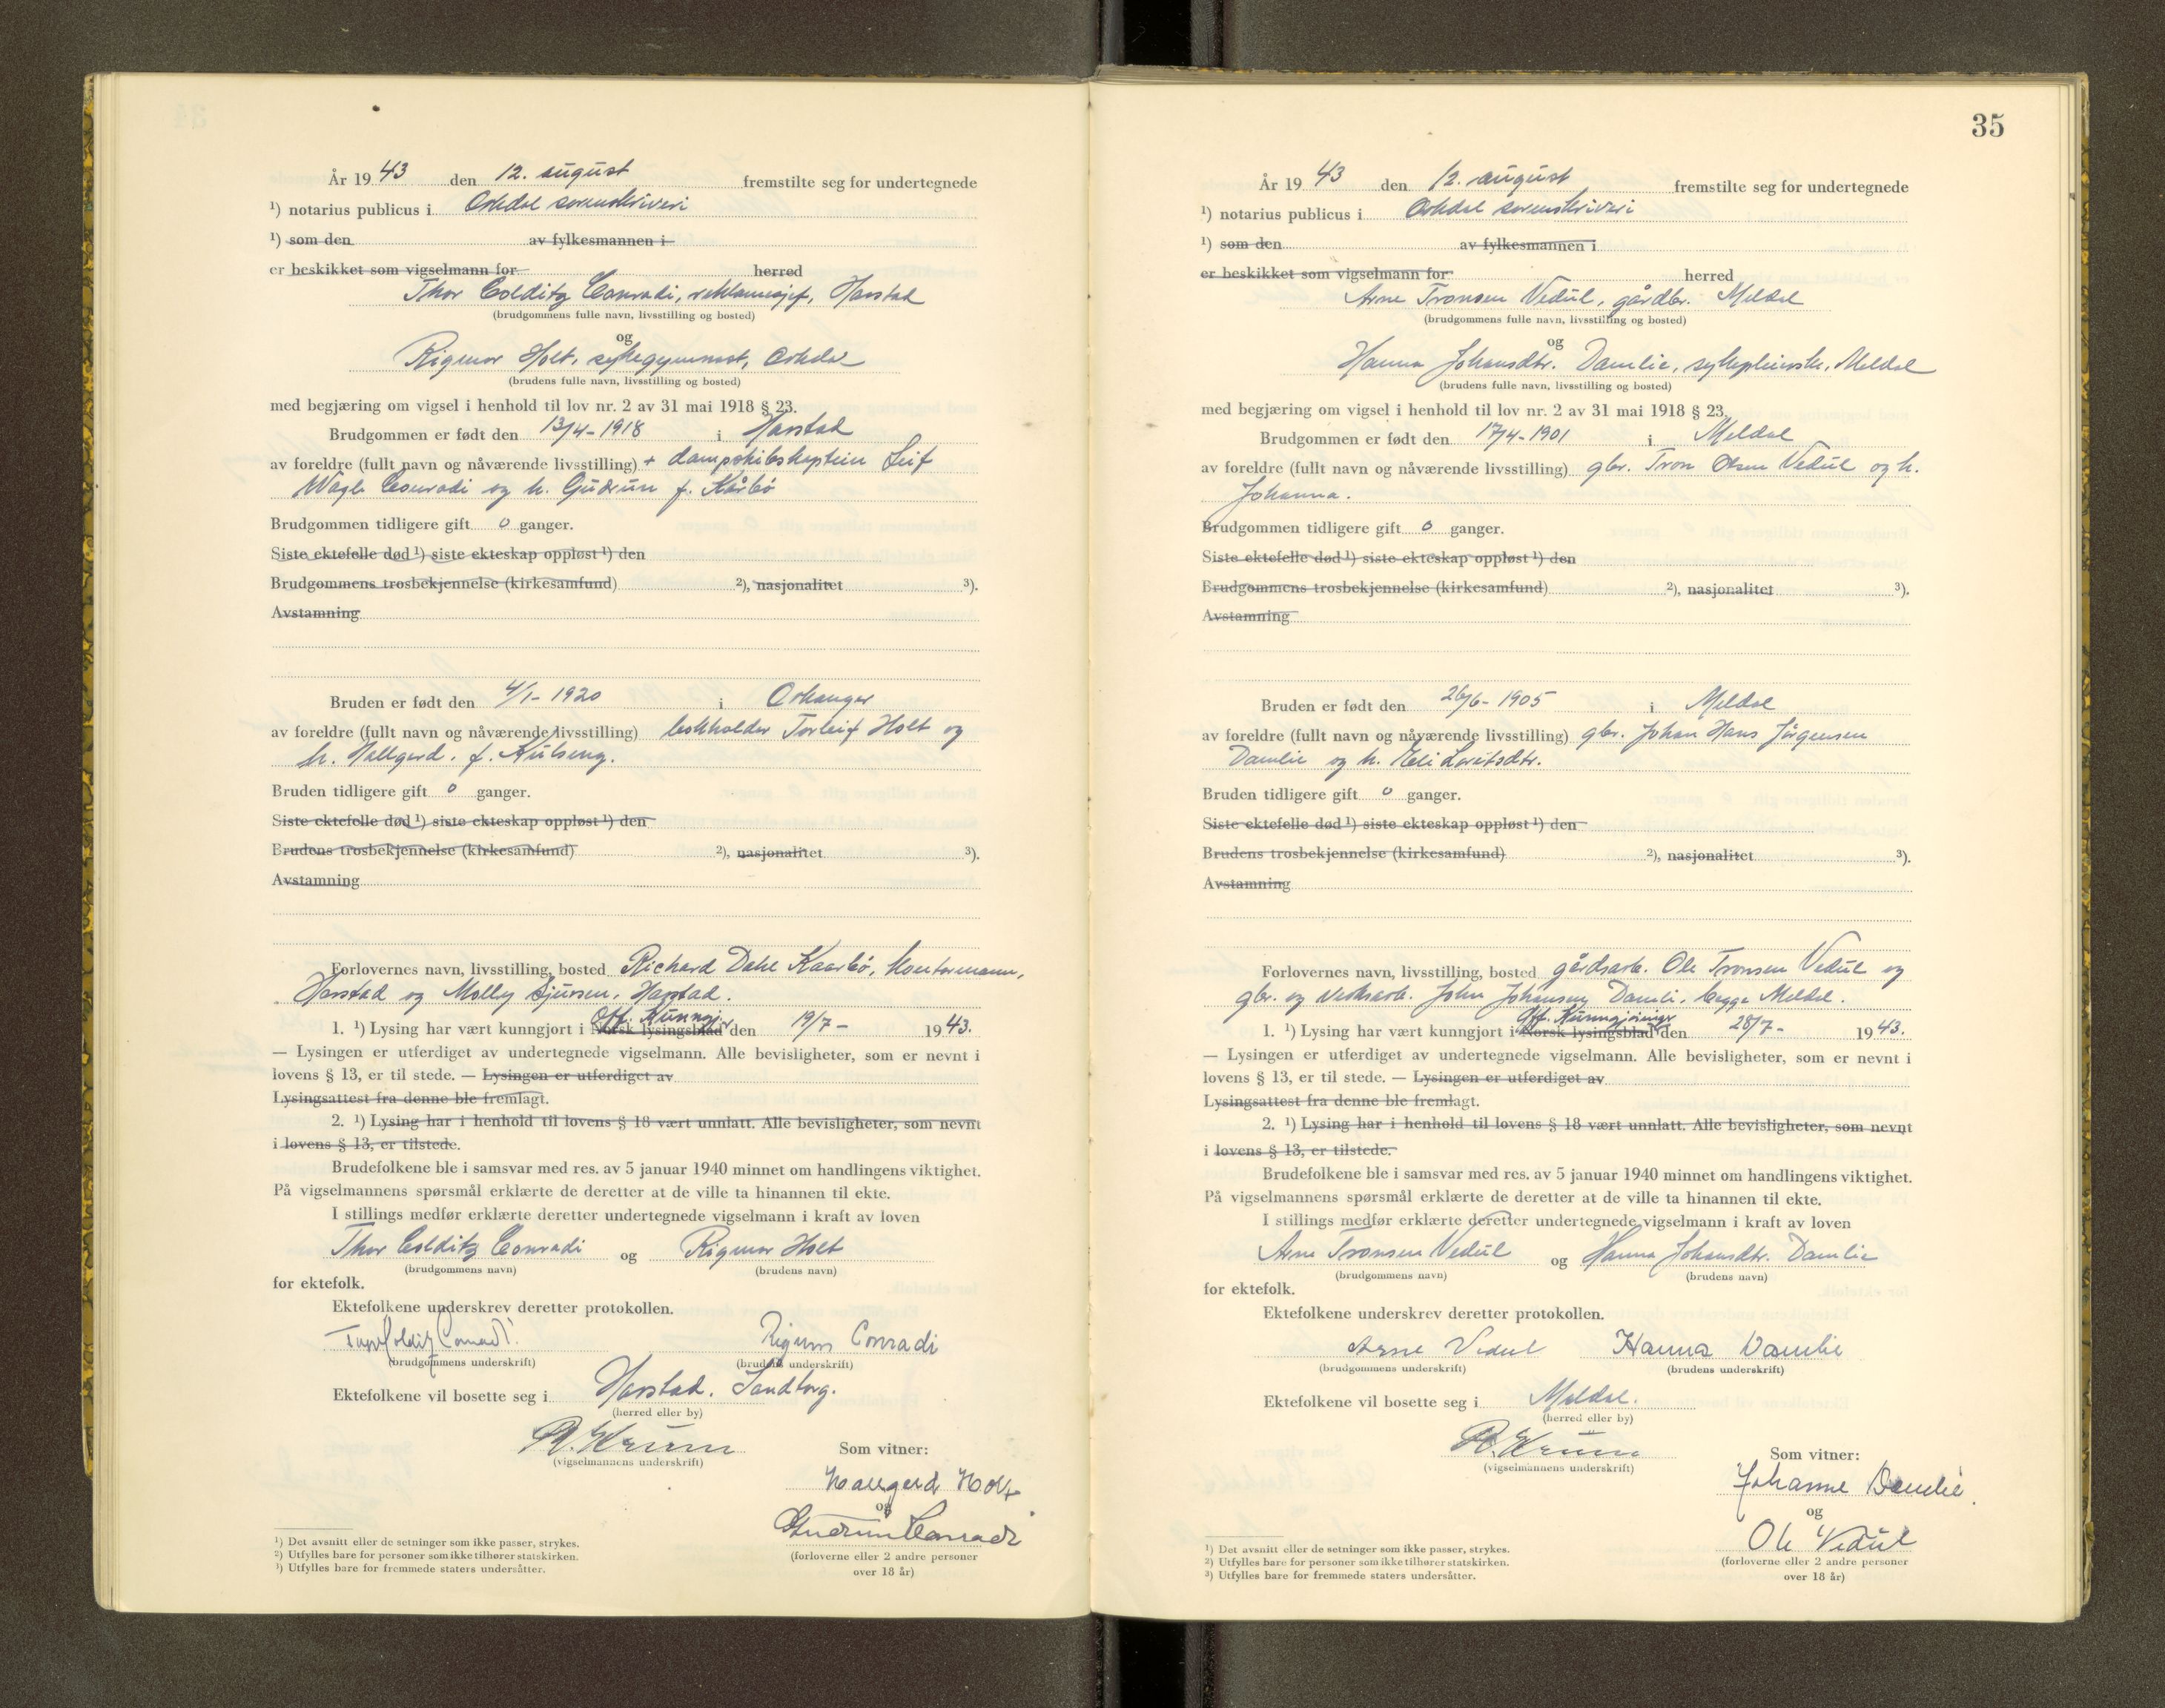 År 19 43 den 12. august fremstilte seg for undertegnede
¹) notarius publicus i Orkdal sorenskriveri
¹) som den av fylkesmannen i
er beskikket som vigselmann for herred
Thor Colditz Conradi, reklamesjef, Harstad
(brudgommens fulle navn, livsstilling og bosted)
og
Rigmor Holt, sykegymnast, Orkdal
(brudens fulle navn, livsstilling og bosted)
med begjæring om vigsel i henhold til lov nr. 2 av 31 mai 1918 § 23.
Brudgommen er født den 13/4-1918 i Harstad
av foreldre (fullt navn og nåværende livsstilling) + dampskibskaptein Leif
Wagle Conradi og h. Gudrun f. Kårbö
Brudgommen tidligere gift 0 ganger.
Siste ektefelle død ¹) siste ekteskap oppløst ¹) den
Brudgommens trosbekjennelse (kirkesamfund) ²), nasjonalitet ³).
Avstamning
Bruden er født den 4/1-1920 i Orkanger
av foreldre (fullt navn og nåværende livsstilling) bokholder Torleif Holt og
h. Hallgerd, f. Kulseng.
Bruden tidligere gift 0 ganger.
Siste ektefelle død ¹) siste ekteskap oppløst ¹) den
Brudens trosbekjennelse (kirkesamfund) ²), nasjonalitet ³).
Avstamning
Forlovernes navn, livsstilling, bosted Richard Dahl Kaarbö, kontormann,
Harstad og Molly Sjursen, Harstad.
Off. Kunngj.
1. ¹) Lysing har vært kunngjort i Norsk lysingsblad den 19/7- 1943.
— Lysingen er utferdiget av undertegnede vigselmann. Alle bevisligheter, som er nevnt i
lovens § 13, er til stede. — Lysingen er utferdiget av
Lysingsattest fra denne ble fremlagt.
2. ¹) Lysing har i henhold til lovens § 18 vært unnlatt. Alle bevisligheter, som nevnt
i lovens § 13, er tilstede.
Brudefolkene ble i samsvar med res. av 5 januar 1940 minnet om handlingens viktighet.
På vigselmannens spørsmål erklærte de deretter at de ville ta hinannen til ekte.
I stillings medfør erklærte deretter undertegnede vigselmann i kraft av loven
Thor Colditz Conradi og Rigmor Holt
(brudgommens navn) (brudens navn)
for ektefolk.
Ektefolkene underskrev deretter protokollen.
Thor Colditz Conradi Rigmor Conradi
(brudgommens underskrift) (brudens underskrift)
Ektefolkene vil bosette seg i Harstad. Sandtorg.
(herred eller by)
(vigselmannens underskrift) Som vitner:
Hallgerd Holt
og
Gudrun Conradi
(forloverne eller 2 andre personer
over 18 år)
¹) Det avsnitt eller de setninger som ikke passer, strykes.
²) Utfylles bare for personer som ikke tilhører statskirken.
³) Utfylles bare for fremmede staters undersåtter.
35
År 19 43 den 12. august fremstilte seg for undertegnede
¹) notarius publicus i Orkdal sorenskriveri
¹) som den av fylkesmannen i
er beskikket som vigselmann for herred
Arne Tronsen Vedul, gårdbr. Meldal
(brudgommens fulle navn, livsstilling og bosted)
og
Hanna Johansdtr. Damlie, sykepleierske, Meldal
(brudens fulle navn, livsstilling og bosted)
med begjæring om vigsel i henhold til lov nr. 2 av 31 mai 1918 § 23.
Brudgommen er født den 17/4-1901 i Meldal
av foreldre (fullt navn og nåværende livsstilling) gbr. Tron Olsen Vedul og h.
Johanna.
Brudgommen tidligere gift 0 ganger.
Siste ektefelle død ¹) siste ekteskap oppløst ¹) den
Brudgommens trosbekjennelse (kirkesamfund) ²), nasjonalitet ³).
Avstamning
Bruden er født den 26/6-1905 i Meldal
av foreldre (fullt navn og nåværende livsstilling) gbr. Johan Hans Jörgensen
Damlie og h. Eli Loritsdtr.
Bruden tidligere gift 0 ganger.
Siste ektefelle død ¹) siste ekteskap oppløst ¹) den
Brudens trosbekjennelse (kirkesamfund) ²), nasjonalitet ³).
Avstamning
Forlovernes navn, livsstilling, bosted gårdsarb. Ole Tronsen Vedul og
gbr. og verksarb. John Johansen Damli, begge Meldal.
Off. Kunngjöringer
1. ¹) Lysing har vært kunngjort i Norsk lysingsblad den 28/7- 1943.
— Lysingen er utferdiget av undertegnede vigselmann. Alle bevisligheter, som er nevnt i
lovens § 13, er til stede. — Lysingen er utferdiget av
Lysingsattest fra denne ble fremlagt.
2. ¹) Lysing har i henhold til lovens § 18 vært unnlatt. Alle bevisligheter, som nevnt
i lovens § 13, er tilstede.
Brudefolkene ble i samsvar med res. av 5 januar 1940 minnet om handlingens viktighet.
På vigselmannens spørsmål erklærte de deretter at de ville ta hinannen til ekte.
I stillings medfør erklærte deretter undertegnede vigselmann i kraft av loven
Arne Tronsen Vedul og Hanna Johansdtr. Damlie
(brudgommens navn) (brudens navn)
for ektefolk.
Ektefolkene underskrev deretter protokollen.
Arne Vedul Hanna Damlie
(brudgommens underskrift) (brudens underskrift)
Ektefolkene vil bosette seg i Meldal.
(herred eller by)
(vigselmannens underskrift) Som vitner:
Johanne Damlie.
og
Ole Vedul
(forloverne eller 2 andre personer
over 18 år)
¹) Det avsnitt eller de setninger som ikke passer, strykes.
²) Utfylles bare for personer som ikke tilhører statskirken.
³) Utfylles bare for fremmede staters undersåtter.